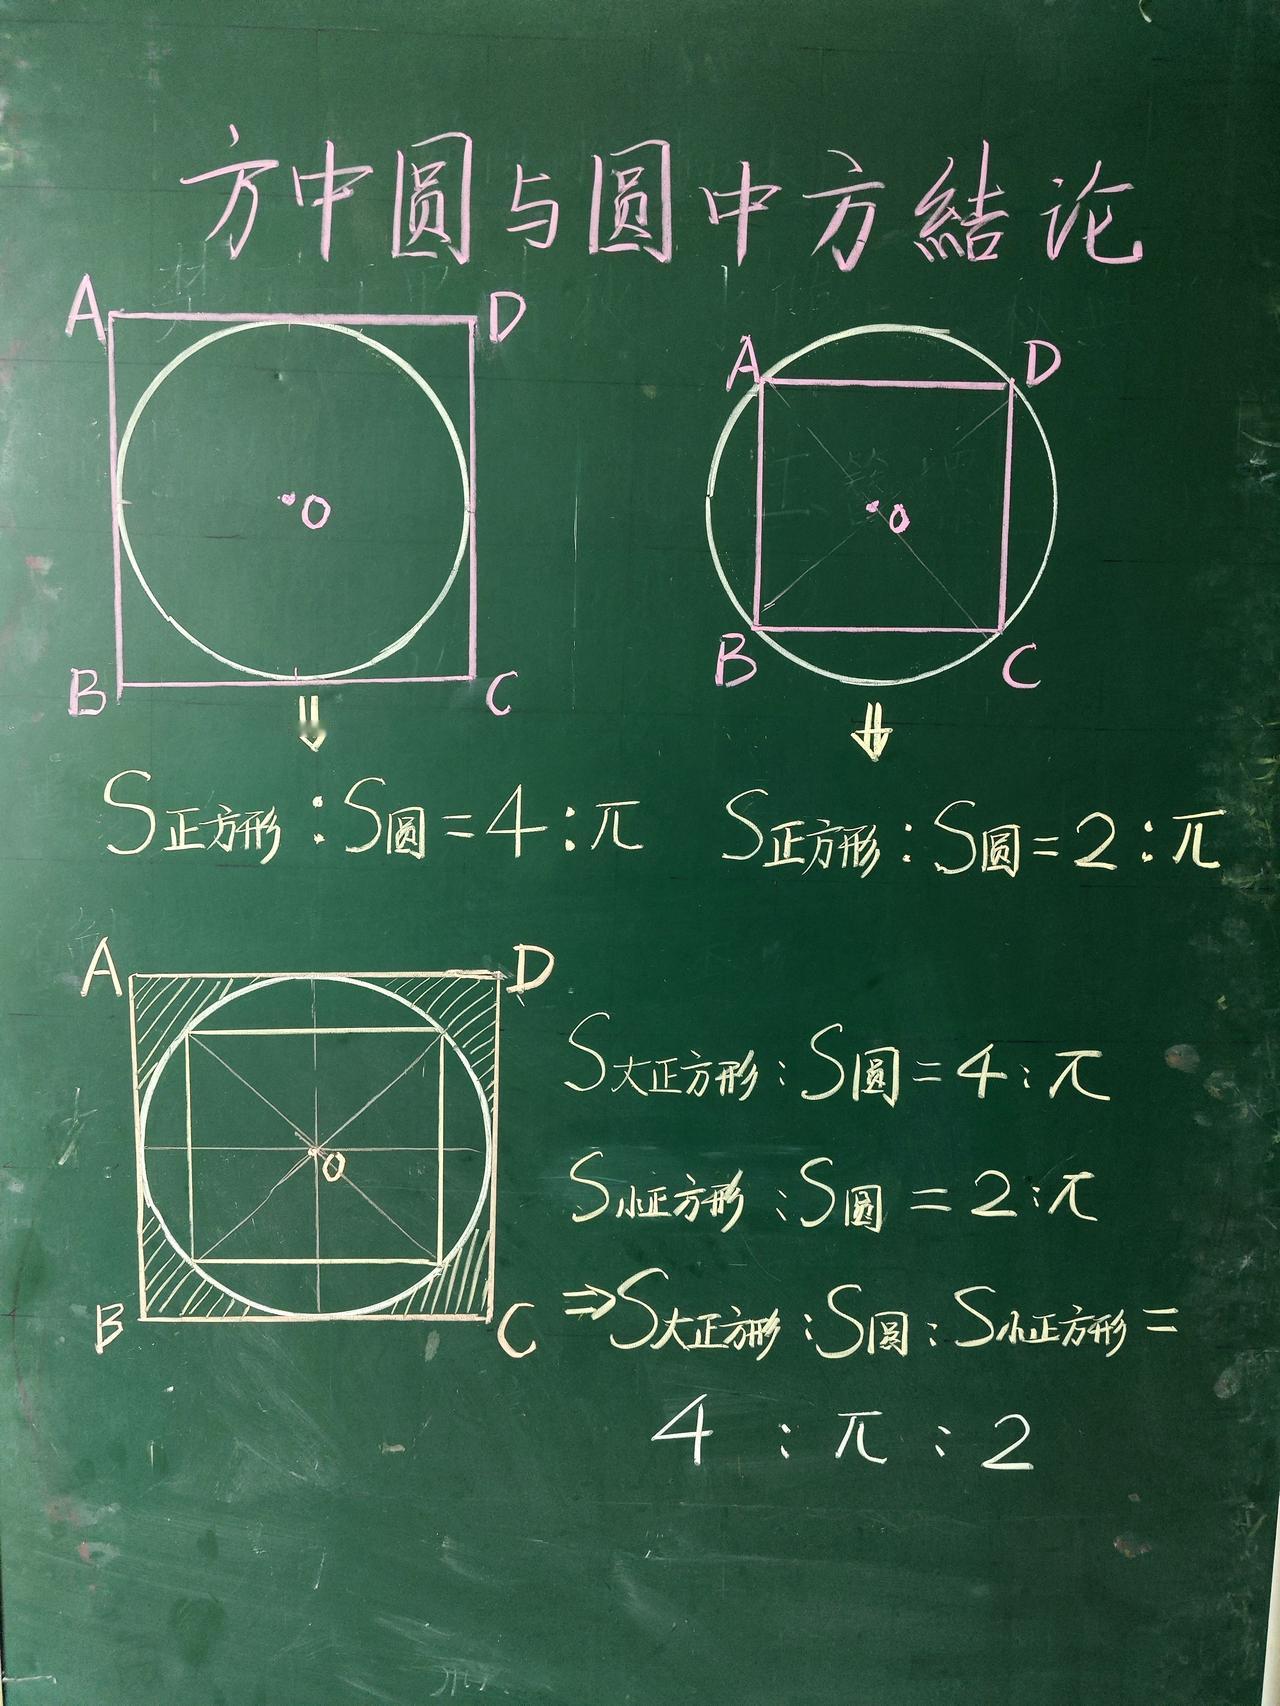 方中圆与圆中方結论
A D
A D
O
O
B C
B C
⇓
⇓
S正方形:S圆=4:π
S正方形:S圆=2:π
A D
O
B C
S大正方形:S圆=4:π
S小正方形:S圆=2:π
⇒S大正方形:S圆:S小正方形=
4:π:2